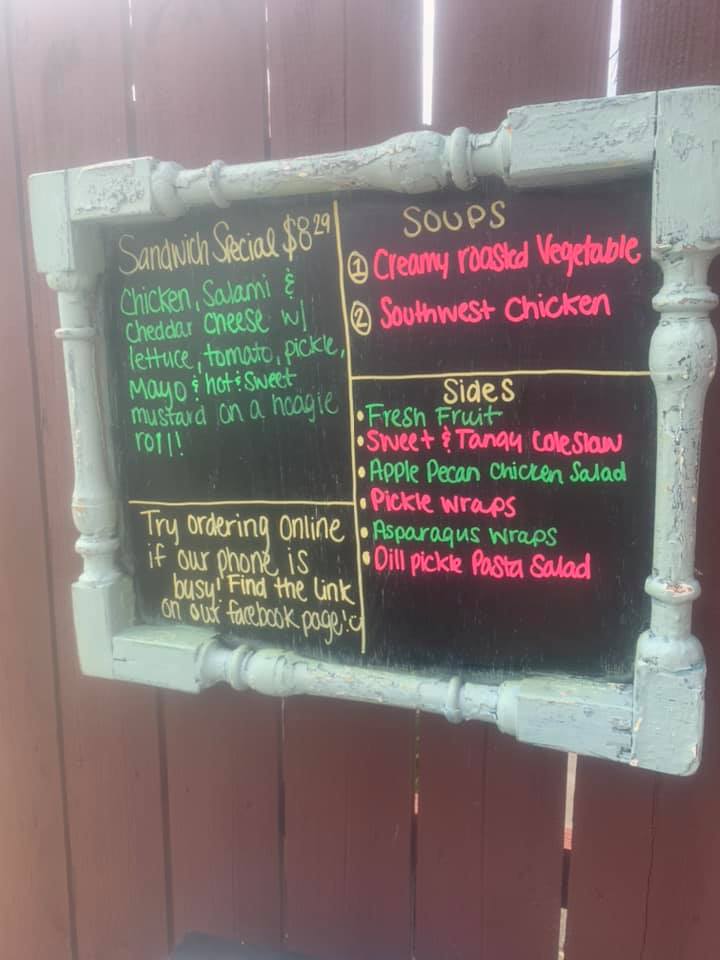 Sandwich Special $8 29
Chicken, Salami &
Cheddar Cheese w/
lettuce, tomato, pickle,
Mayo & hot & Sweet
mustard on a hoagie
roll!
Try ordering online
if our phone is
busy! Find the link
on our facebook page!
SOUPS
1 Creamy roasted Vegetable
2 Southwest Chicken
Sides
• Fresh Fruit
• Sweet & Tangy Coleslaw
• Apple Pecan Chicken Salad
• Pickle wraps
• Asparagus wraps
• Dill pickle Pasta Salad